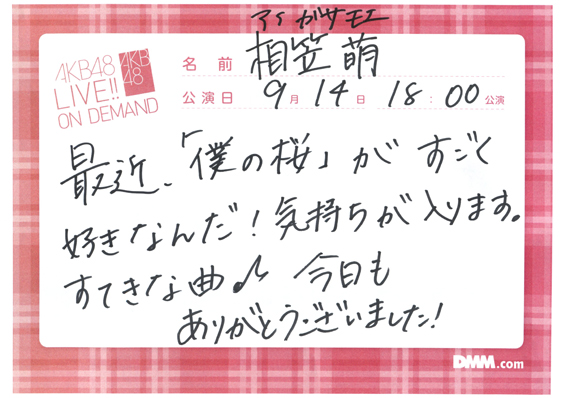 アイ ガサ モエ
AKB48
LIVE!!
ON DEMAND
AKB
48
名前 相笠萌
公演日 9月14日 18:00公演
最近、「僕の桜」が すごく
好きなんだ!気持ちが入ります。
すてきな曲♪ 今日も
ありがとうございました!
DMM.com